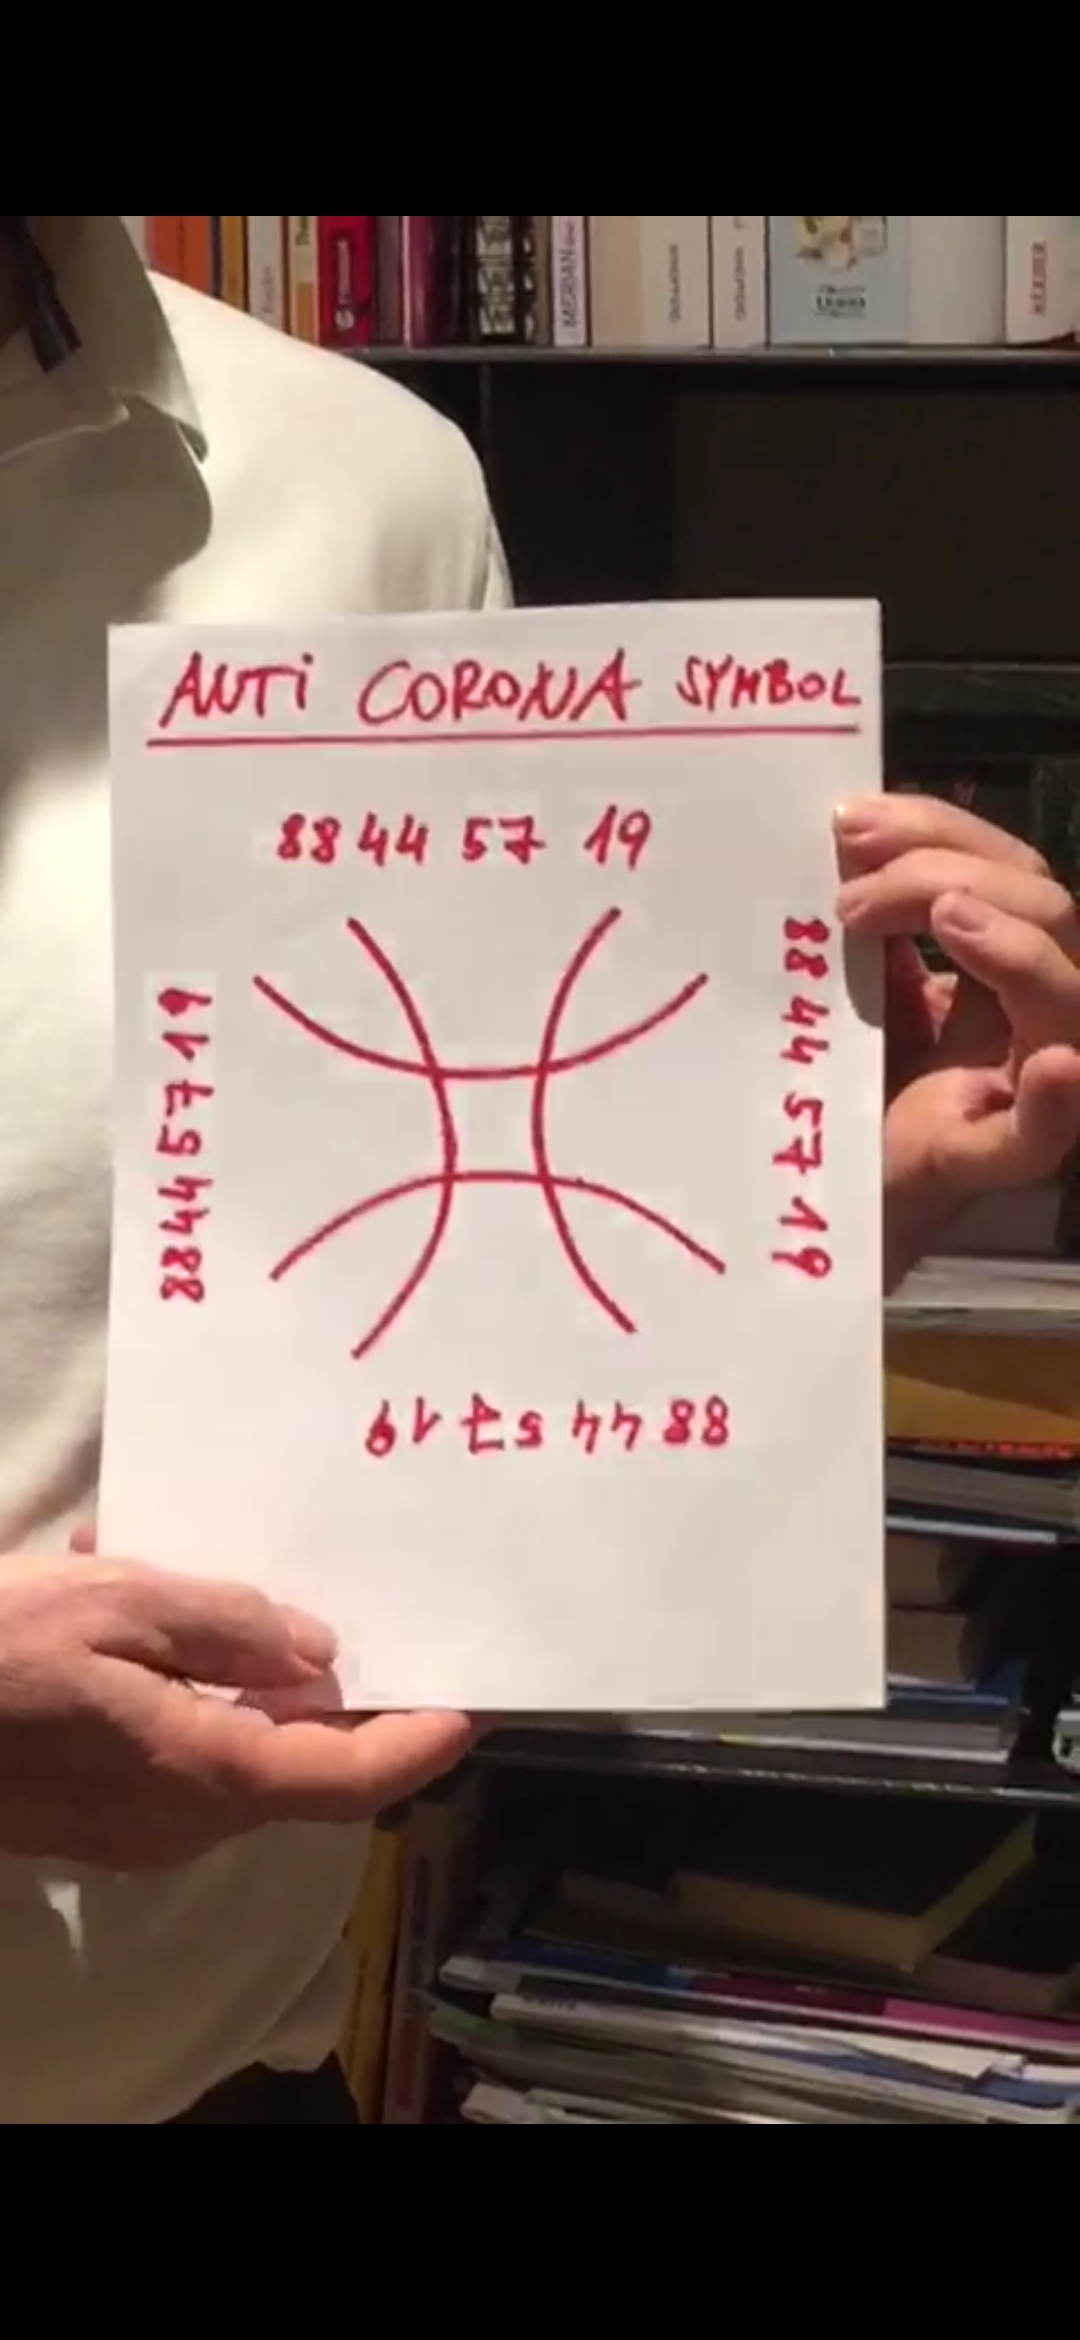 ANTi CORONA SYMBOL
88 44 57 19
88 44 57 19
88 44 57 19
88 44 57 19
MERIDIAN